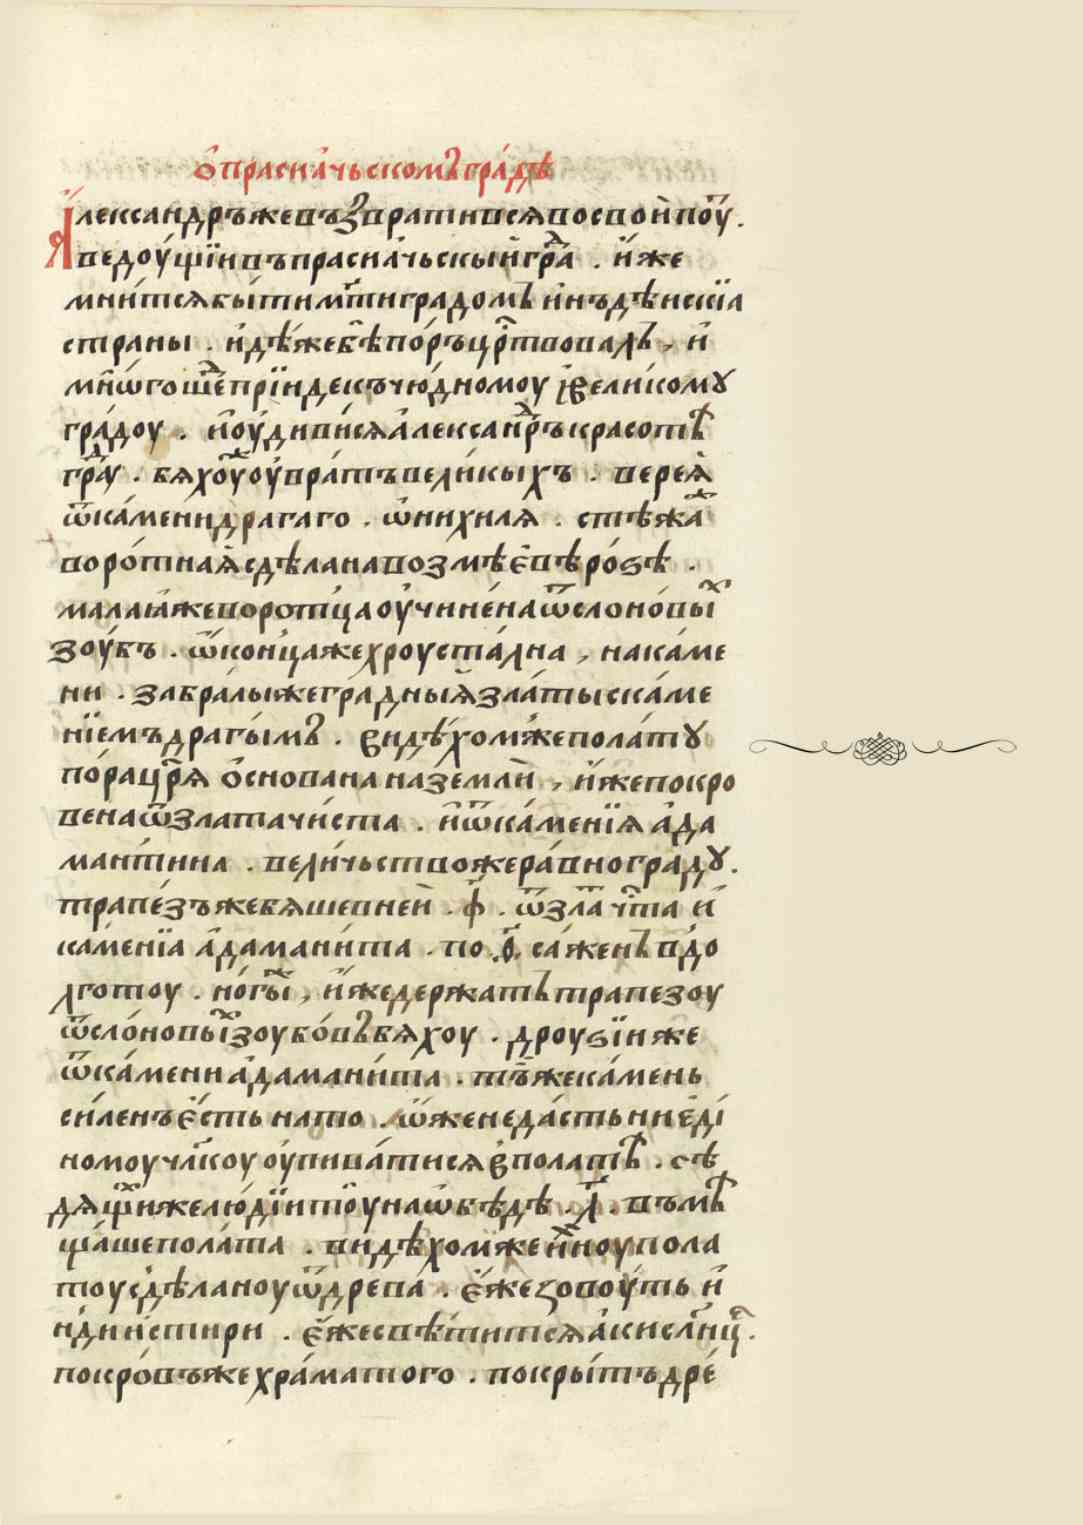 ѡ҆прасна́чьскомъгра́дѣ
А҆леѯандръжевъзвративсѧвосвоѝпоу҆т҇.
ведоу́щїивъпрасна́чьскыѝгра҇д. и҆же
мни́тсѧбы́тимт҃иградомъ и҆ндѣ́искїа
страны . и҆дѣ́жебѣпо́ръцр҇твовалъ, и҆
мно́гошеⷣ прїидекъчю́дномоу вели́комꙋ
гра́доу . и҆оу҆диви́сѧа҆леѯанⷣръкрасотѣ
граⷣу . бѧхоуⷤоу҆вра́тъвели́кыхъ . вереѧ҆
ѿка́менидрагаго . ѡ҆нихилѧ . стѣжаⷤ
воро́тнаѧ҆сдѣланавозмѣе҆вѣро́ѕѣ .
малаѧ҆жеворотцаоу҆чине́наѿслоно́выⷯ
зоу́бъ . ѿконцажехроуста́лна , нака́ме
ни . забра́лыжегра́дныѧ҆зла́тыска́ме
нїемъдрагы́мъ . видѣ́хомжепола́тꙋ
по́рацр҃ѧ ѻ҆сновананаземлѝ , и҆жепокро
венаѿзлаταчи́ста . и҆ѿка́менїѧ а҆да
манти́на . вели́чьствожера́вногра́дꙋ.
трапе́зъжебѧшевнеѝ . ф҃ . ѿзлаⷮчⷭ҇та и҆
ка́менїа а҆дамани́та . по .о҃. са́женъ вⷣо
лготоу . но́гыⷤ, и҆жедержатьтрапезоу
ѿсло́новыⷯзоубо́въбѧхоу . дроуѕїиже
ѿка́мениа҆дамани́та . тъⷤжека́мень
си́ленъе҆сть нато . ѡ҆женеда́стьние҆ді
номоучл҃коу оу҆пива́тисѧ в̾полатѣ . сѣ
дѧщиⷯжелю́дїитоу наѡ҆бѣдѣ .л҃. въмѣ
ща́шепола́та . видѣ́хомже и҆ноупола
тоусдѣланоуѿдрева . е҆жезовоу́ть и҆
ндиистири . е҆жесвѣ́титсѧа҆кислн҃це.
покро́въжехра́матого . покры́тъдре